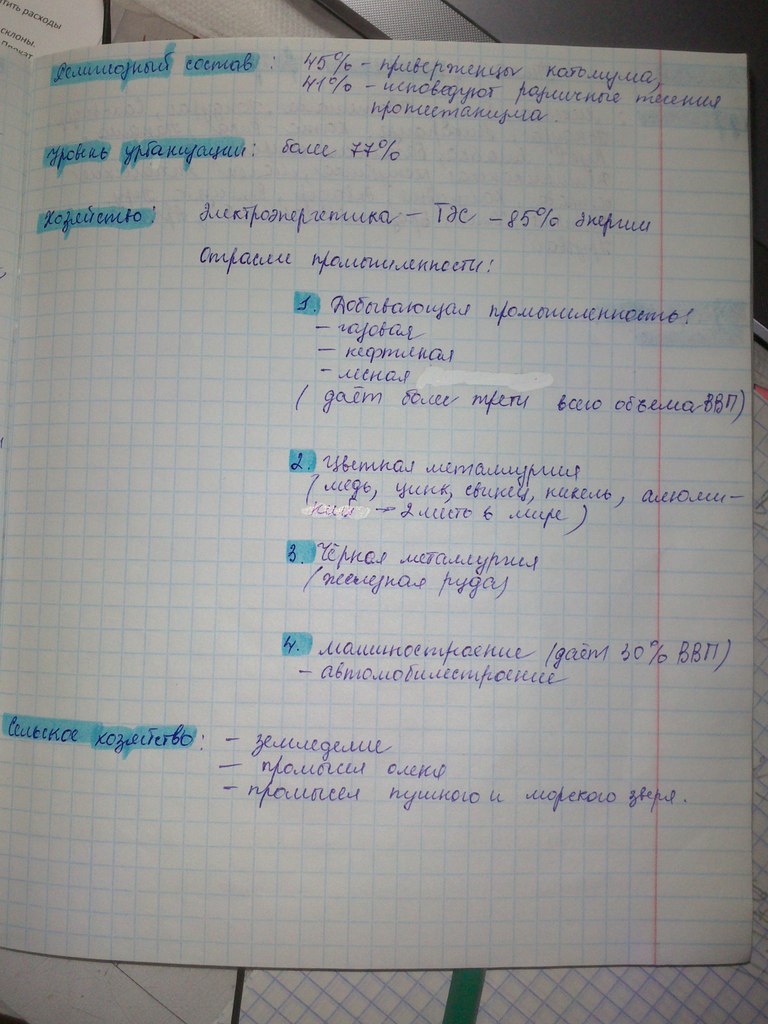 тить расходы
склоны.
Религиозный состав: 45% - приверженцы католизма,
41% - исповедуют различные течения
протестанизма.
Уровень урбанизации: более 77%
Хозяйство: Электроэнергетика - ТЭС - 85% энергии
Отрасли промышленности:
1. Добывающая промышленность:
- газовая
- нефтяная
- лесная
(даёт более трети всего объема ВВП)
2. Цветная металлургия
(медь, цинк, свинец, никель, алюми-
ний - 2 место в мире)
3. Чёрная металлургия
(железная руда)
4. Машиностроение (даёт 30% ВВП)
- автомобилестроение
Сельское хозяйство: - земледелие
- промысел оленя
- промысел пушного и морского зверя.